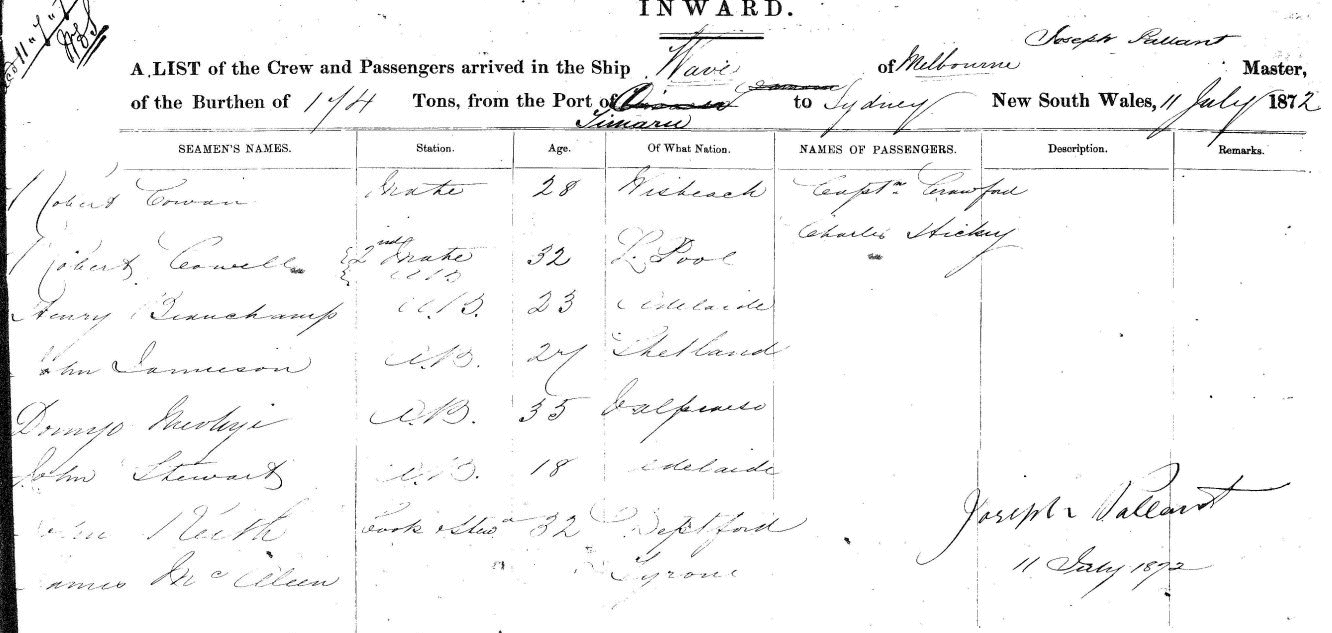 INWARD.
Joseph Pallant
A LIST of the Crew and Passengers arrived in the Ship Wave of Melbourne Master,
of the Burthen of 174 Tons, from the Port of to Sydney New South Wales, 11 July 1872
Timaru
SEAMEN'S NAMES. Station. Age. Of What Nation. NAMES OF PASSENGERS. Description. Remarks.
1 Robert Cowan Mate 28 Wisbeach Captn Crawford
Charles Hickey
1 Robert Cowell 2nd Mate 32 L. Pool
A.B
Henry Beauchamp A.B. 23 Adelaide
John Jamieson A.B. 27 Shetland
A.B. 35 Valparaiso
John Stewart A.B. 18 Adelaide
Keith Cook & Stewd 32 Deptford
James McAleen Tyrone
Joseph Pallant
11 July 1872